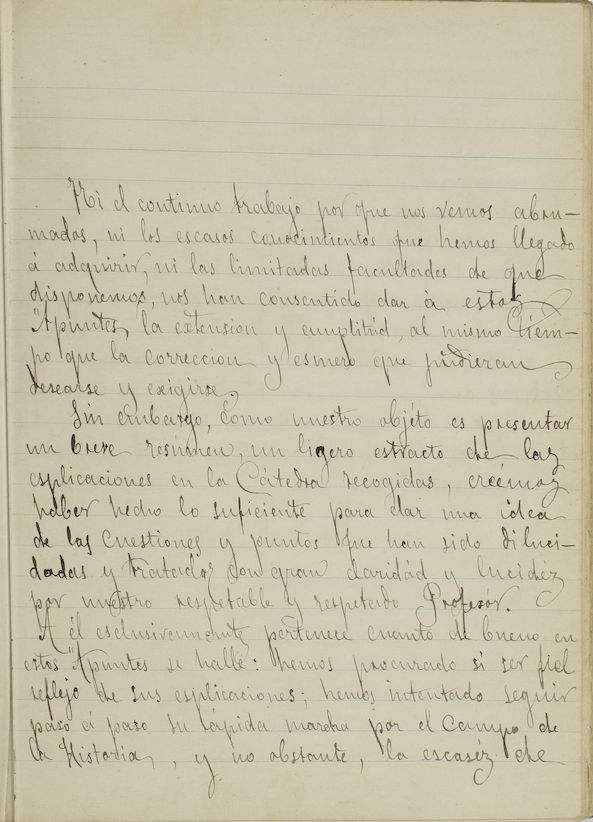 Ni el continuo trabajo por que nos vemos abru-
mados, ni los escasos conocimientos que hemos llegado
á adquirir, ni las limitadas facultades de que
disponemos, nos han consentido dar á estos
"Apuntes, la extension y amplitúd, al mismo tiem-
po que la correccion y esmero que pudieran
desearse y exigirse.
Sin embargo, como nuestro objéto es presentar
un breve resúmen, un ligero estracto de las
esplicaciones en la Cátedra recogidas, creémos
haber hecho lo suficiente para dar una idea
de las cuestiones y puntos que han sido diluci-
dadas y tratados con gran claridád y lucidéz
por nuestro respetable y respetado Profesór.
A él esclusivamente pertenece cuanto de bueno en
estos "Apuntes se halle: hemos procurado si ser fiel
reflejo de sus esplicaciones; hemos intentado seguir
paso á paso su rápida marcha por el campo de
la Historia, y no obstante, la escaséz de